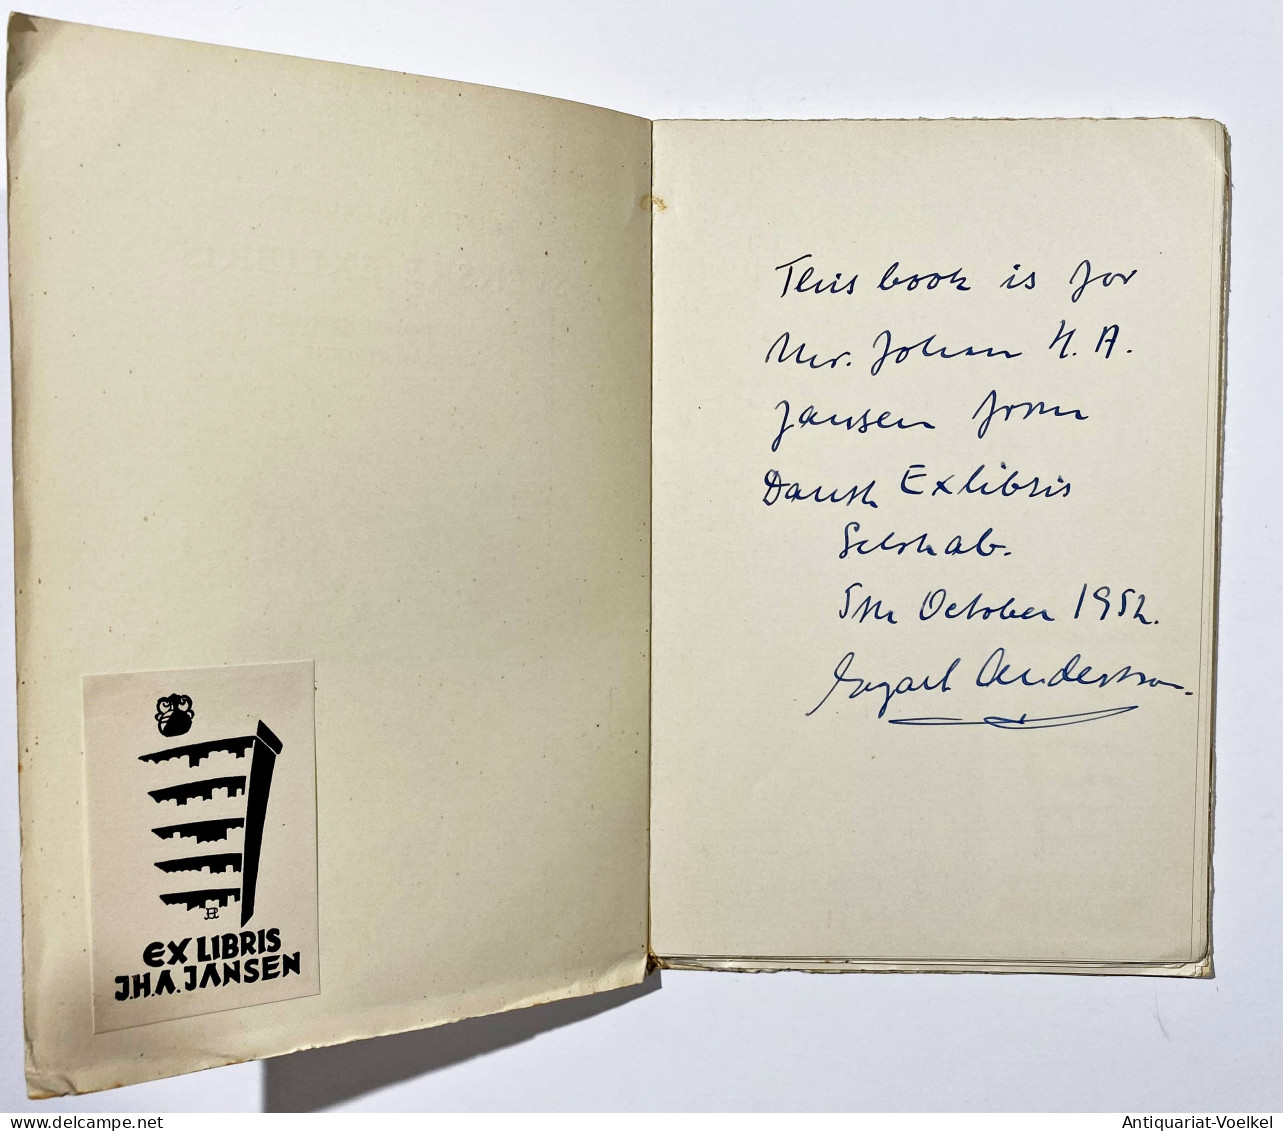 EX LIBRIS
J.H.A. JANSEN
This book is for
Mr. Johan H. A.
Jansen from
Dansk Exlibris
Selskab.
5th October 1952.
Andersen.
delcampe.net
Antiquariat-Voelkel